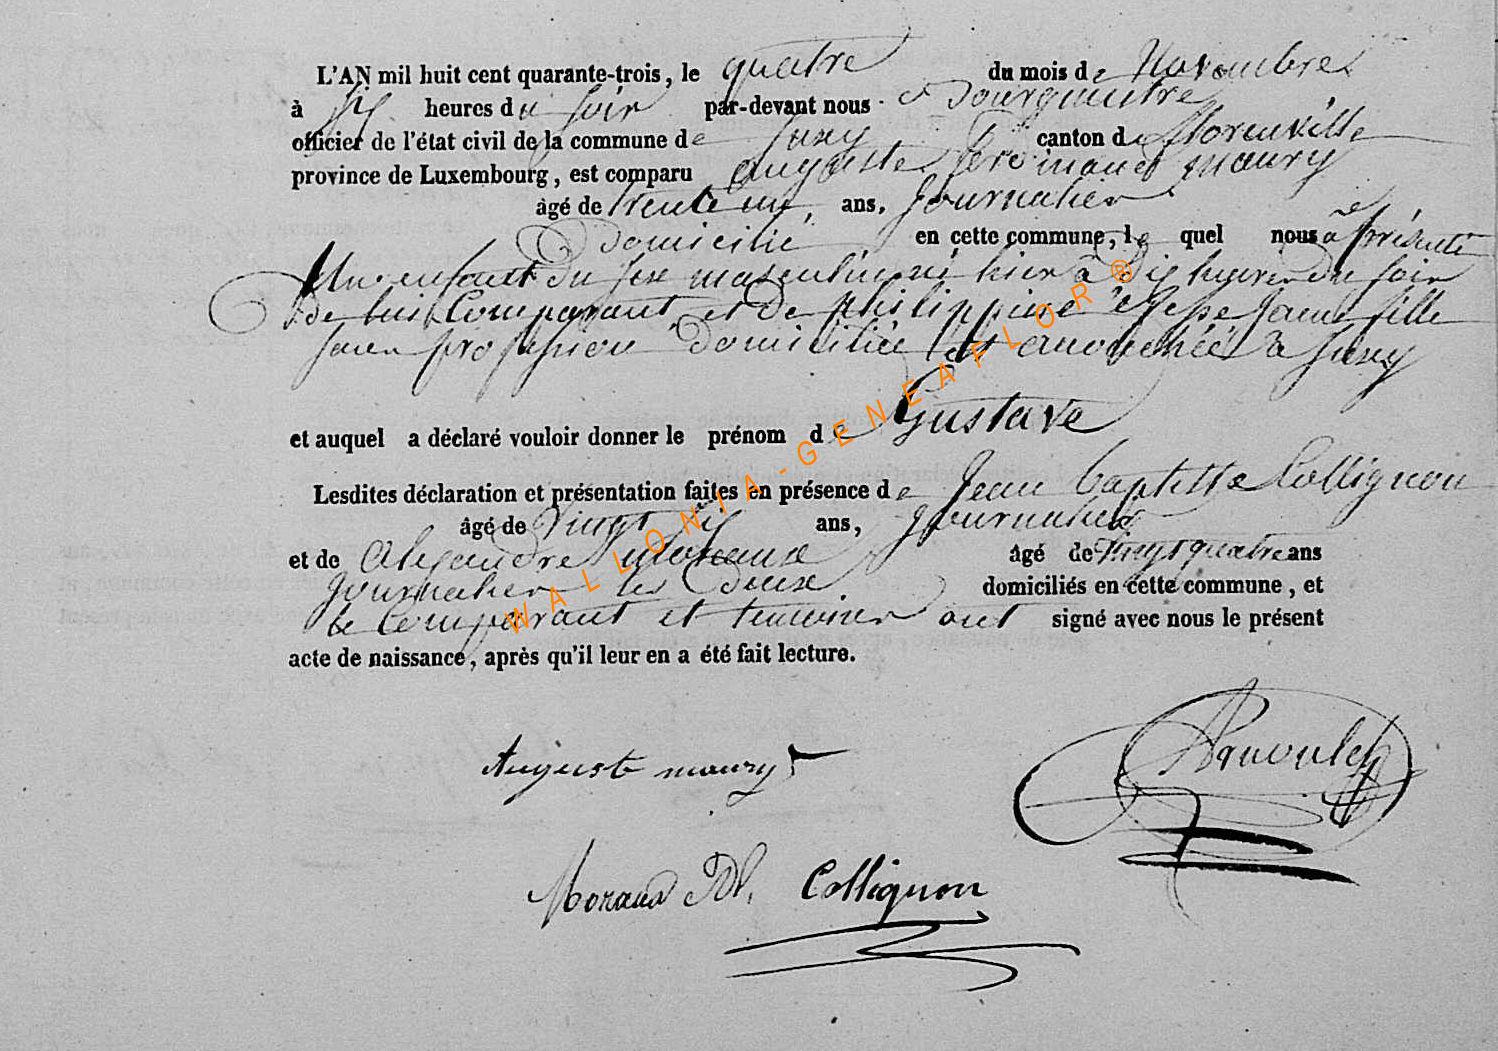 L'AN mil huit cent quarante-trois, le quatre du mois de Novembre
à six heures du soir par-devant nous Bourguestre
officier de l'état civil de la commune de Suxy canton de Florenville
province de Luxembourg, est comparu Auguste ferdinand Maury
âgé de trente un, ans, Journalier
Domicilié en cette commune, le quel nous a présenté
Un enfant du sexe masculin né hier à dix heures du soir
de lui Comparant et de philippine fille
sans profession domiciliée et accouchée à Suxy
et auquel a déclaré vouloir donner le prénom de Gustave
Lesdites déclaration et présentation faites en présence de Jean baptiste Collignon
âgé de Vingt six ans, Journalier
et de Alexandre âgé de Vingt quatre ans
Journalier les Deux domiciliés en cette commune, et
le Comparant et temoins ont signé avec nous le présent
acte de naissance, après qu'il leur en a été fait lecture.
Auguste maury
Collignon
WALLONIA-GENEAFLOR®